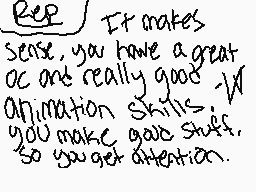 Rep
It makes
sense, you have a great
oc and really good
animation skills.
you make good stuff,
so you get attention.